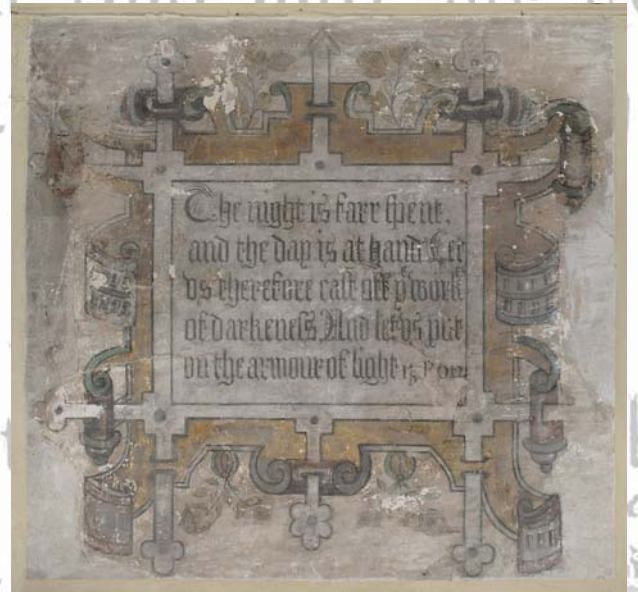 The night is farr spent,
and the day is at hand Let
vs therefore cast off yͤ works
of darkeness And let vs put
on the armour of light 13 Rom